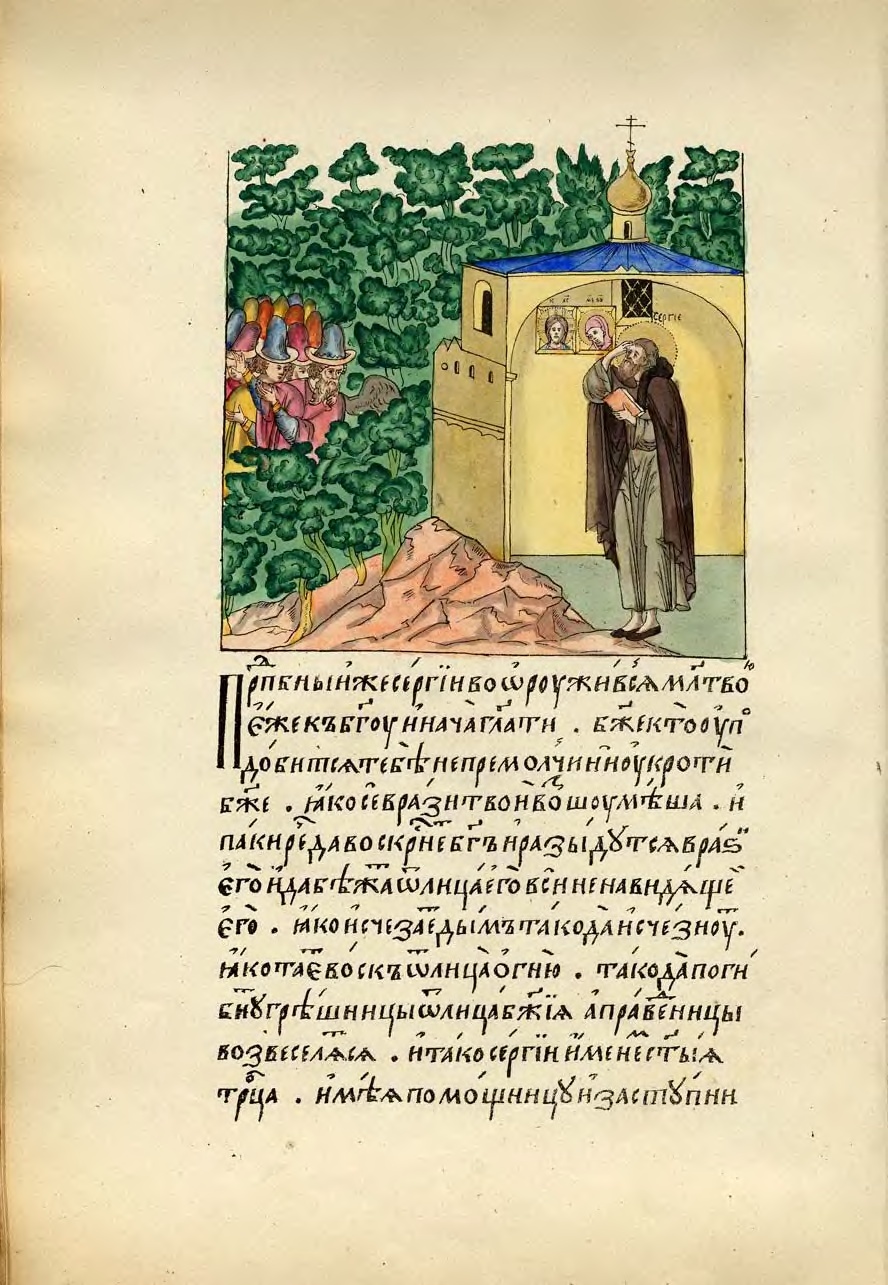 І҃С Х҃С М҃Р Ѳ҃У
СЕРГІЕ
Прⷣпбныиже сергїи воѡроуживсѧ мл҃твою
єже къ бг҃оу и҆ нача гл҃ати . бж҃е кто оупⷪ
добитсѧ тебѣ не премолчи ни оукроти
бж҃е . ꙗко се врази твои воⷥшоумѣша . и҆
паки реⷱ да воскрⷭнетъ бг҃ъ и разыдутсѧ вразⁿ
єго и҆ да бѣжаⷮ ѿ лица его вси ненавидѧщеⁿ
єго . ꙗко исчезаеⷮ дымъ тако да исчезноуⷮ .
ꙗко таеⷮ воскъ ѿ лица огню . тако да поги
бнуⷮ грѣшницы ѿ лица бж҃їѧ а праⷣвеницы
возвеселѧⷮсѧ . и҆ тако сергїи именеⷨ ст҃ыѧ
трⷪца . имѣѧ помощницу и заступни